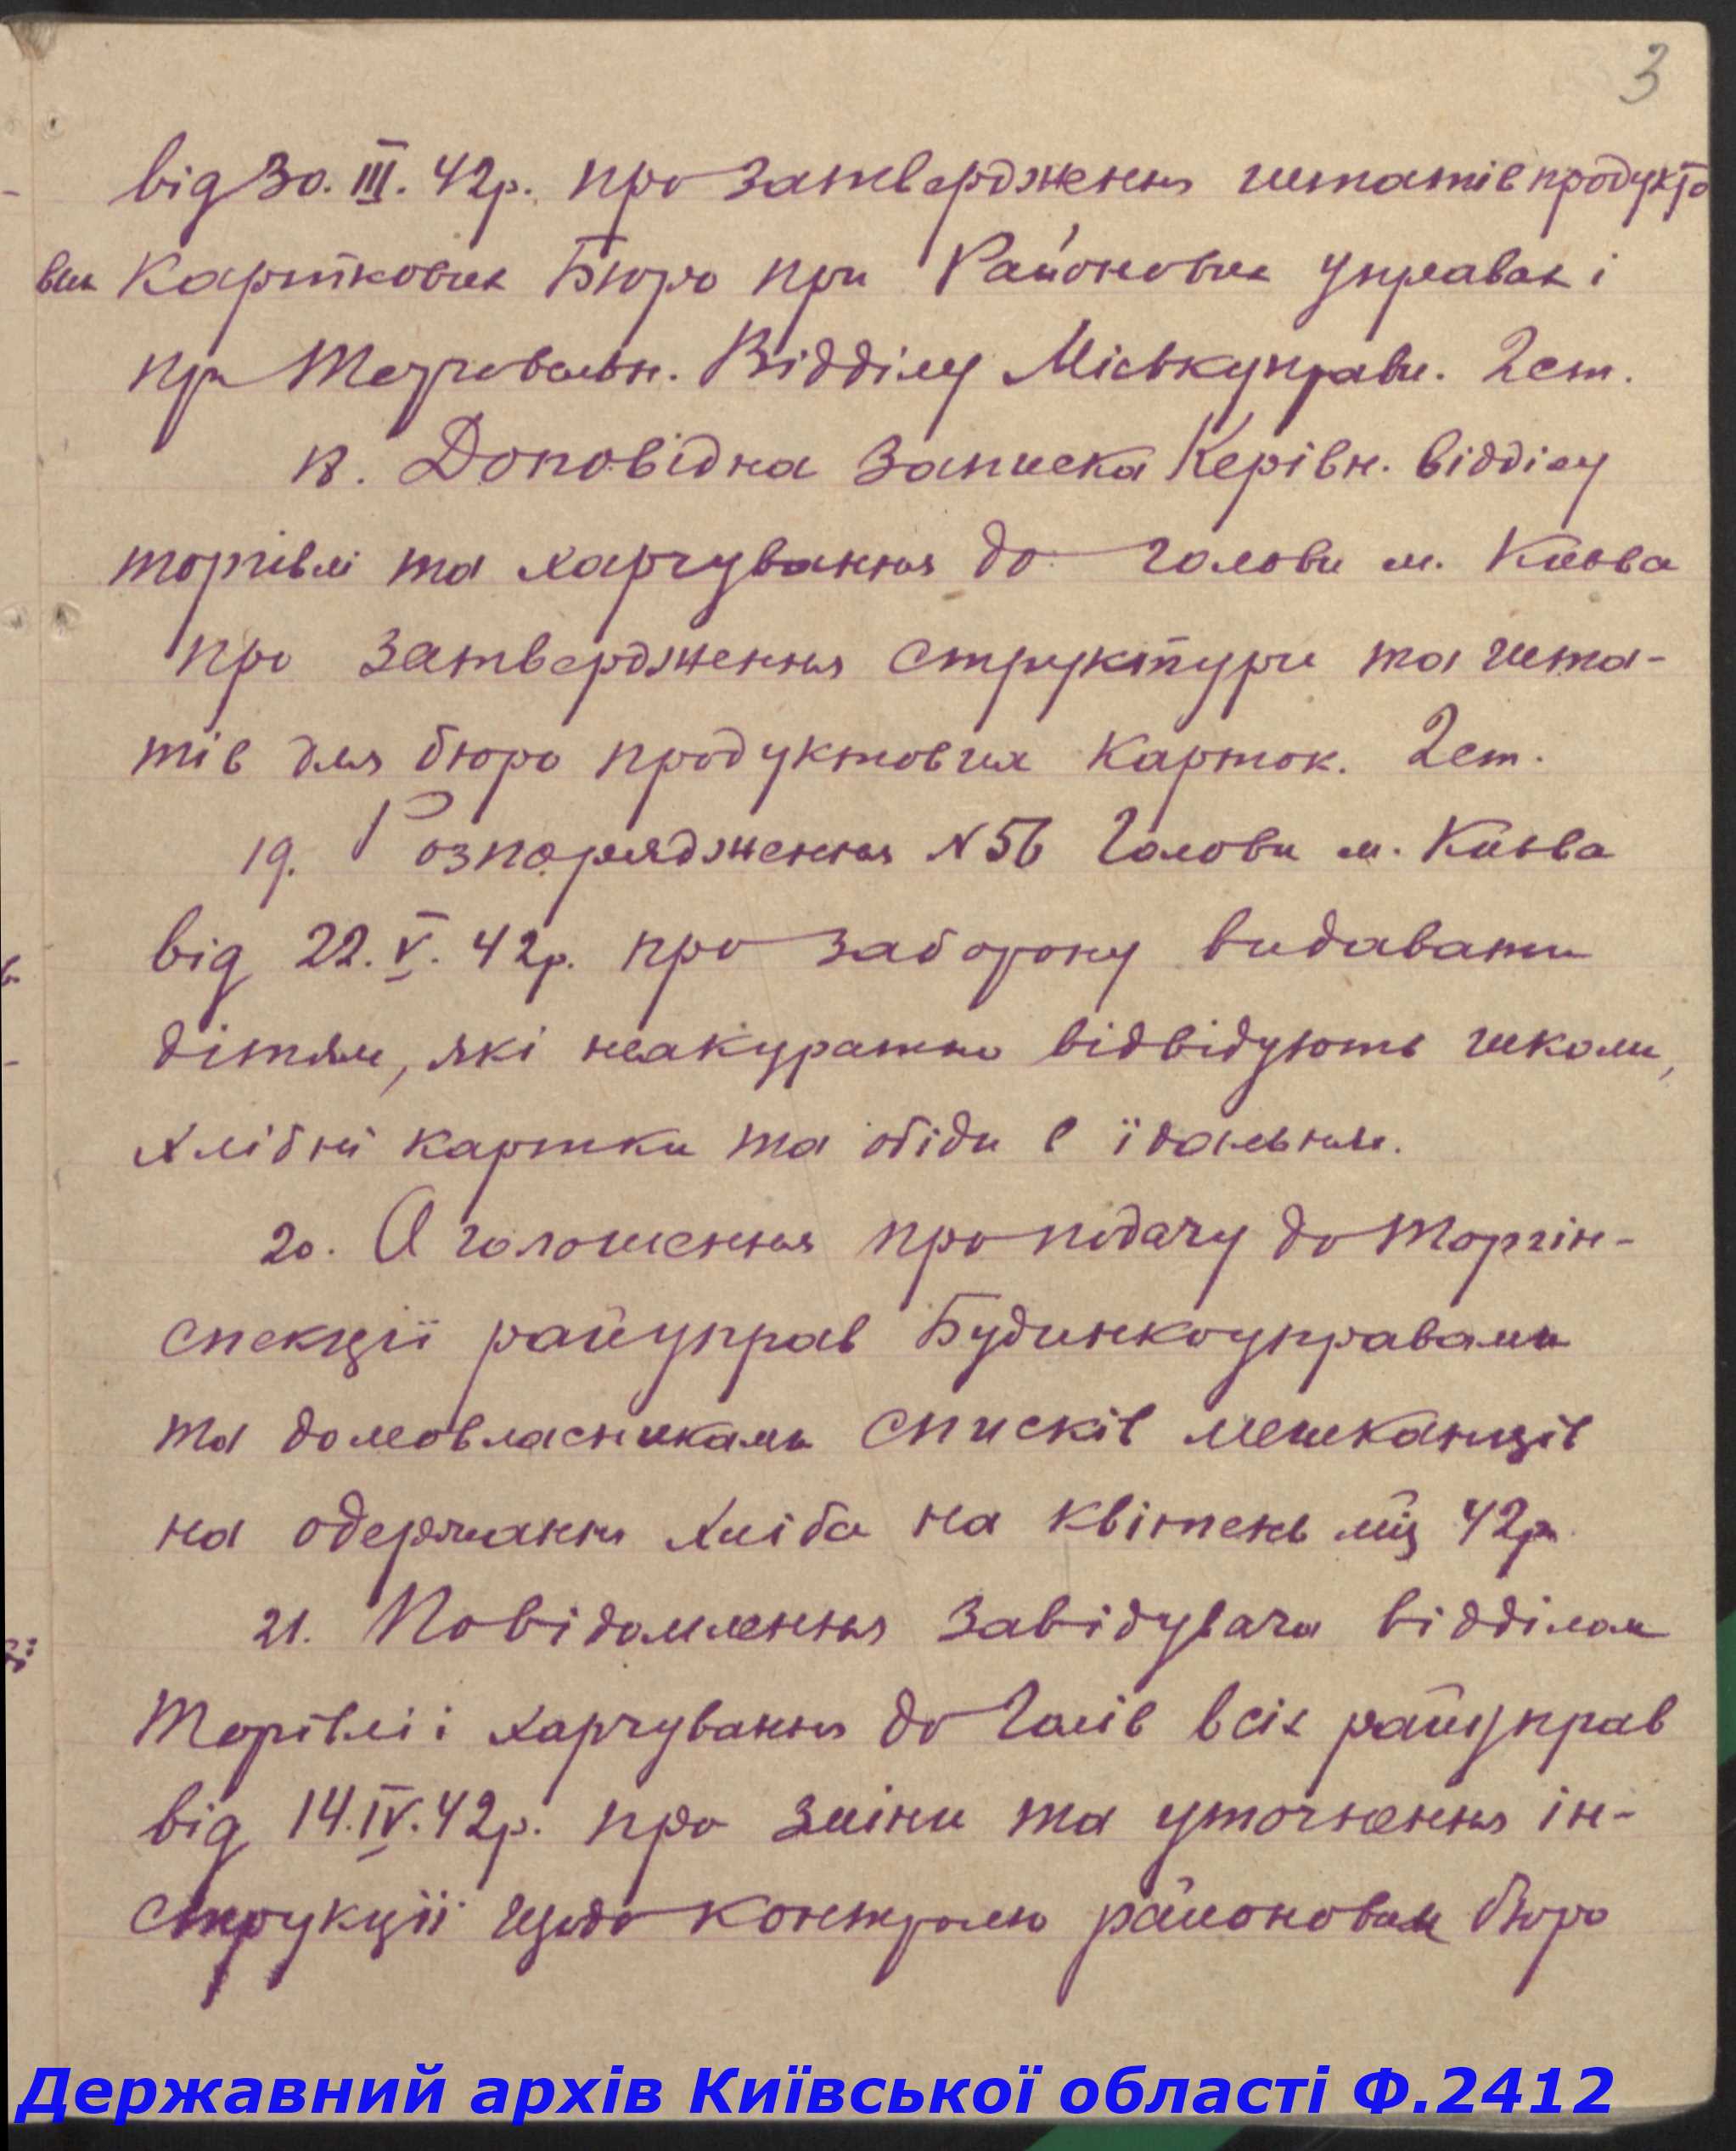 3
від 30.III.42р. про затвердження штатів продукто
вих карткових Бюро при Районових управах і
при Торговельн. Відділу Міськуправи. 2 ст.
18. Доповідна записка Керівн. відділу
торгівлі та харчування до Голови м. Києва
про затвердження структури та шта-
тів для бюро продуктових карток. 2 ст.
19. Розпорядження N 56 Голови м. Києва
від 22.V.42р. про заборону видавати
дітям, які неакуратно відвідують школи,
хлібні картки та обіди в їдальням.
20. Оголошення про подачу до Торгін-
спекції райуправ Будинкоуправами
та домовласниками списків мешканців
на одержання хліба на квітень міс 42р
21. Повідомлення завідувача відділом
Торгівлі і харчування до Голів всіх райуправ
від 14.IV.42р. про зміни та уточнення ін-
струкції щодо контролю районовим бюро
Державний архів Київської області Ф.2412